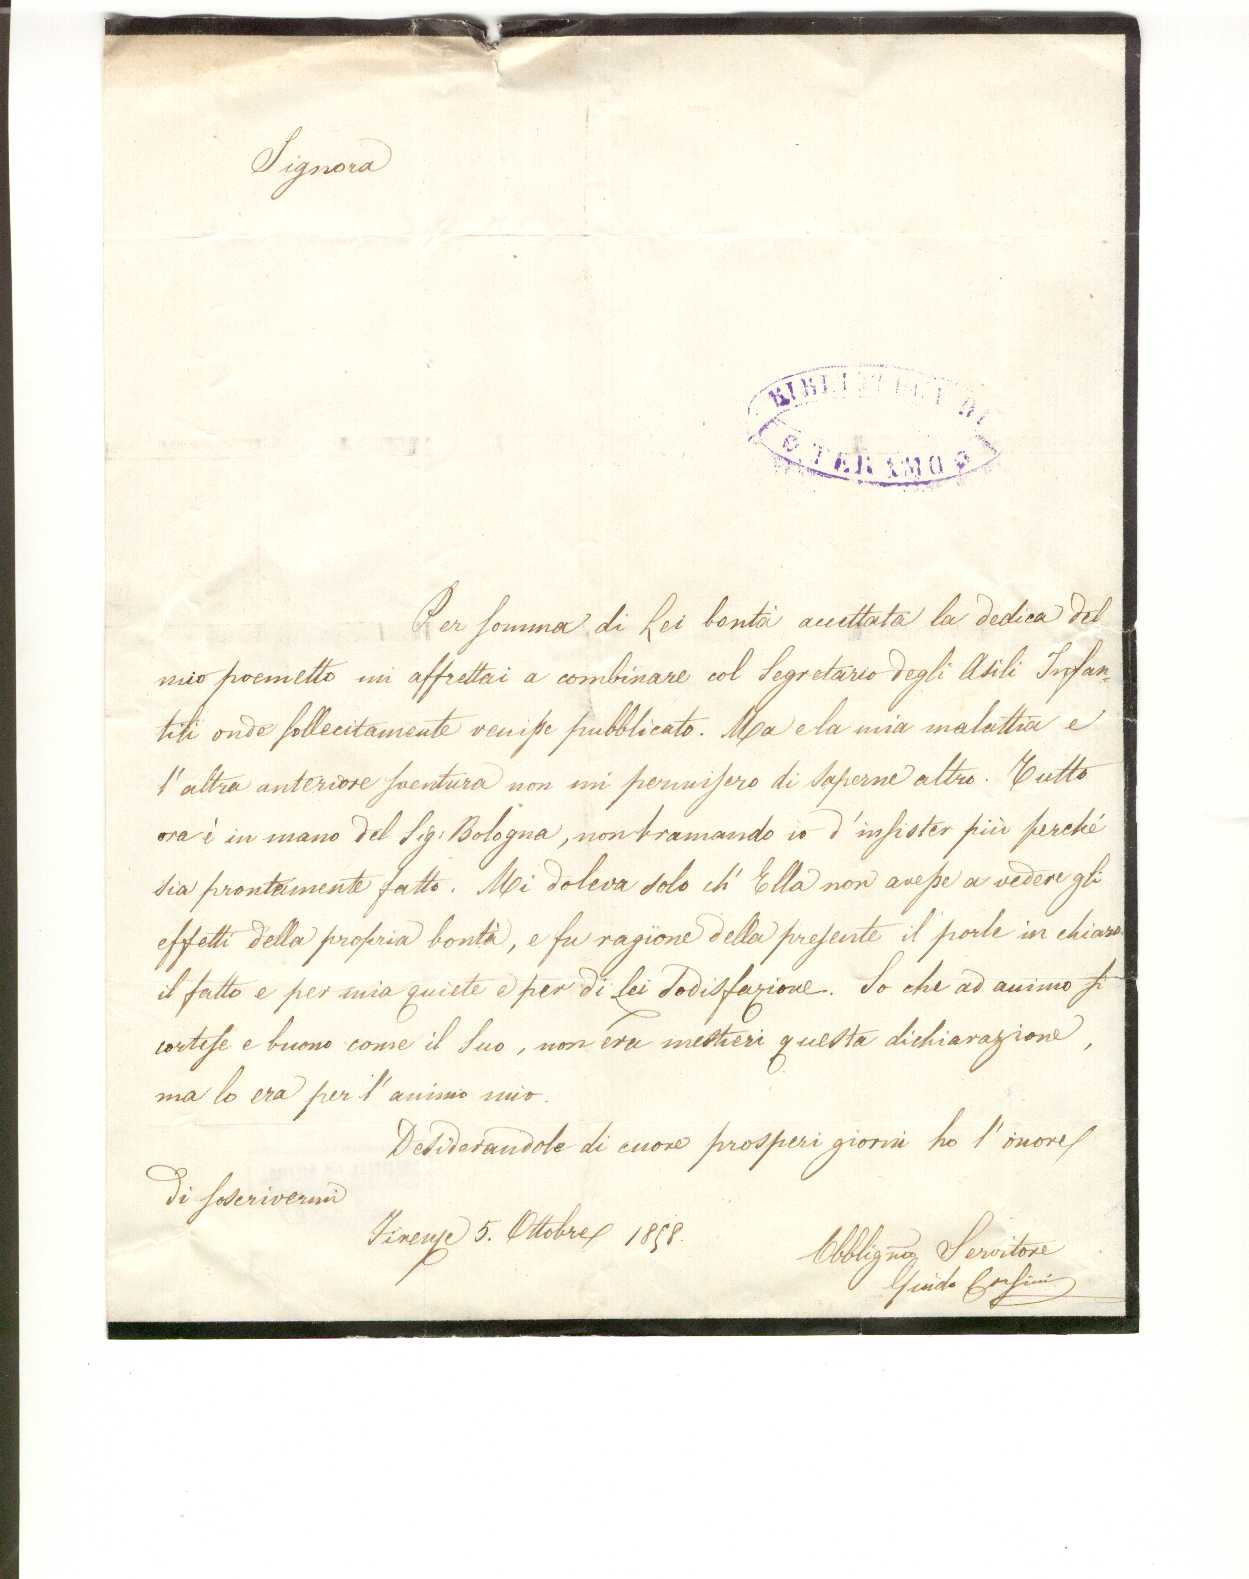 Signora
BIBLIOTECA DI
TERAMO
Per somma di Lei bontà accettata la dedica del
mio poemetto mi affrettai a combinare col Segretario degli Asili Infan-
tili onde sollecitamente venisse pubblicato. Ma e la mia malattia e
l'altra anteriore sventura non mi permisero di saperne altro. Tutto
ora è in mano del Sig: Bologna, non bramando io d'insister più perché
sia prontamente fatto. Mi doleva solo ch' Ella non avesse a vedere gli
effetti della propria bontà, e fu ragione della presente il porle in chiaro
il fatto e per mia quiete e per di Lei sodisfazione. So che ad animo sì
cortese e buono come il Suo, non era mestieri questa dichiarazione,
ma lo era per l'animo mio.
Desiderandole di cuore prosperi giorni ho l'onore
di soscrivermi
Firenze 5. Ottobre 1858.
Obbligmo Servitore
Guido Corsini